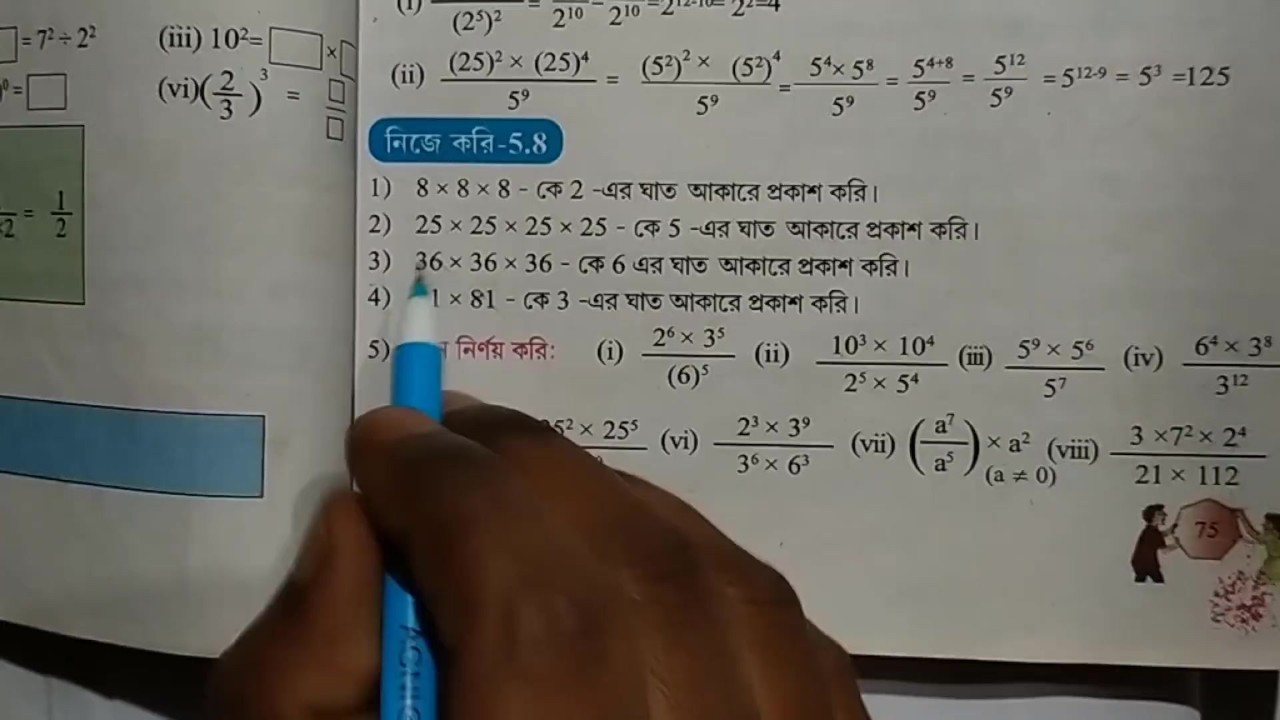 □ = 7² ÷ 2² (iii) 10² = □ × □
⁰ = □ (vi) (2/3)³ = □/□
= 1/2
(i) (2⁵)² = 2¹⁰ = 2¹⁰ = 2¹²⁻¹⁰ = 2² = 4
(ii) (25)² × (25)⁴ / 5⁹ = (5²)² × (5²)⁴ / 5⁹ = 5⁴ × 5⁸ / 5⁹ = 5⁴⁺⁸ / 5⁹ = 5¹² / 5⁹ = 5¹²⁻⁹ = 5³ =125
নিজে করি-5.8
1) 8 × 8 × 8 - কে 2 -এর ঘাত আকারে প্রকাশ করি।
2) 25 × 25 × 25 × 25 - কে 5 -এর ঘাত আকারে প্রকাশ করি।
3) 36 × 36 × 36 - কে 6 এর ঘাত আকারে প্রকাশ করি।
4) 1 × 81 - কে 3 -এর ঘাত আকারে প্রকাশ করি।
5) নির্ণয় করি: (i) 2⁶ × 3⁵ / (6)⁵ (ii) 10³ × 10⁴ / 2⁵ × 5⁴ (iii) 5⁹ × 5⁶ / 5⁷ (iv) 6⁴ × 3⁸ / 3¹²
5² × 25⁵ (vi) 2³ × 3⁹ / 3⁶ × 6³ (vii) (a⁷/a⁵) × a² (a ≠ 0) (viii) 3 ×7² × 2⁴ / 21 × 112
75